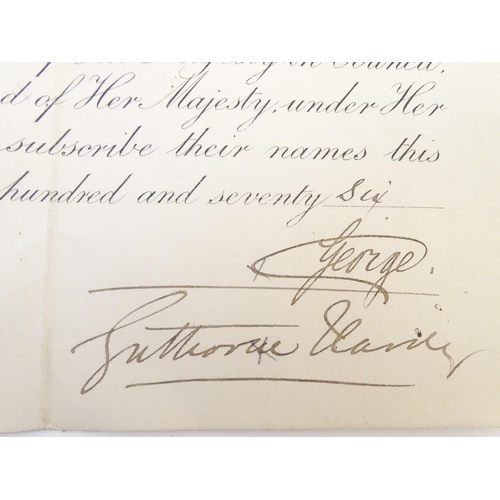 Majesty in Council,
d of Her Majesty, under Her
subscribe their names this
hundred and seventy Six
George.
Gathorne Hardy